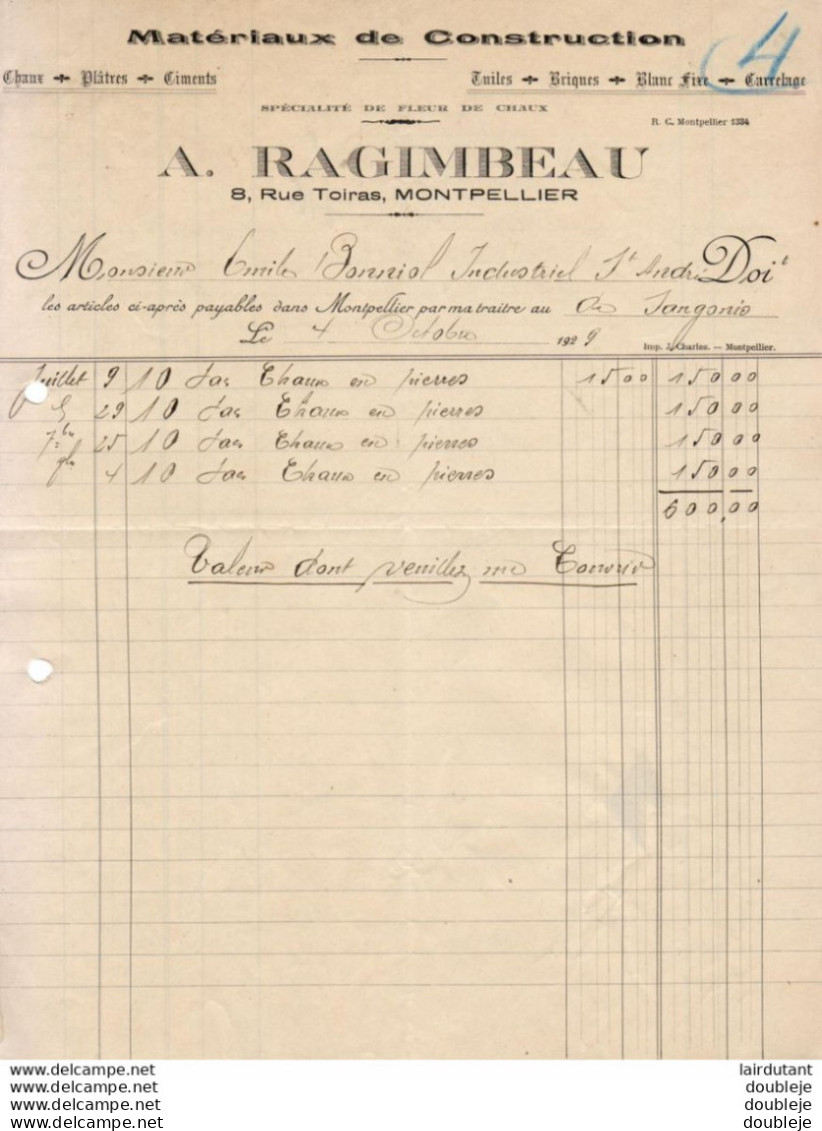 4
Matériaux de Construction
Chaux Plâtres Ciments Tuiles Briques Blanc Fixe Carrelage
SPÉCIALITÉ DE FLEUR DE CHAUX
R. C. Montpellier 1334
A. RAGIMBEAU
8, Rue Toiras, MONTPELLIER
Monsieur Emile Bonniol Industriel St André Doit
les articles ci-après payables dans Montpellier par ma traitre au de Sangonis
Le 4 Octobre 1929
Imp. J. Charles. — Montpellier.
Juillet 9 10 sacs Chaux en pierres 15 00 150 00
29 10 sacs Chaux en pierres 150 00
7bre 25 10 sacs Chaux en pierres 150 00
4 10 sacs Chaux en pierres 150 00
600,00
Valeur dont veuillez me Couvrir
www.delcampe.net
www.delcampe.net
www.delcampe.net
www.delcampe.net
lairdutant
doubleje
doubleje
doubleje